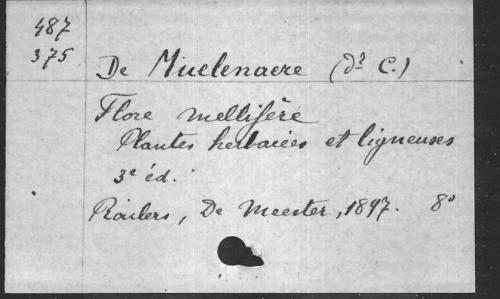 487
375
De Muelenaere (Dr C.)
Flore mellifère
Plantes herbacées et ligneuses
3e éd.
Roulers, De Meester, 1897. 8°